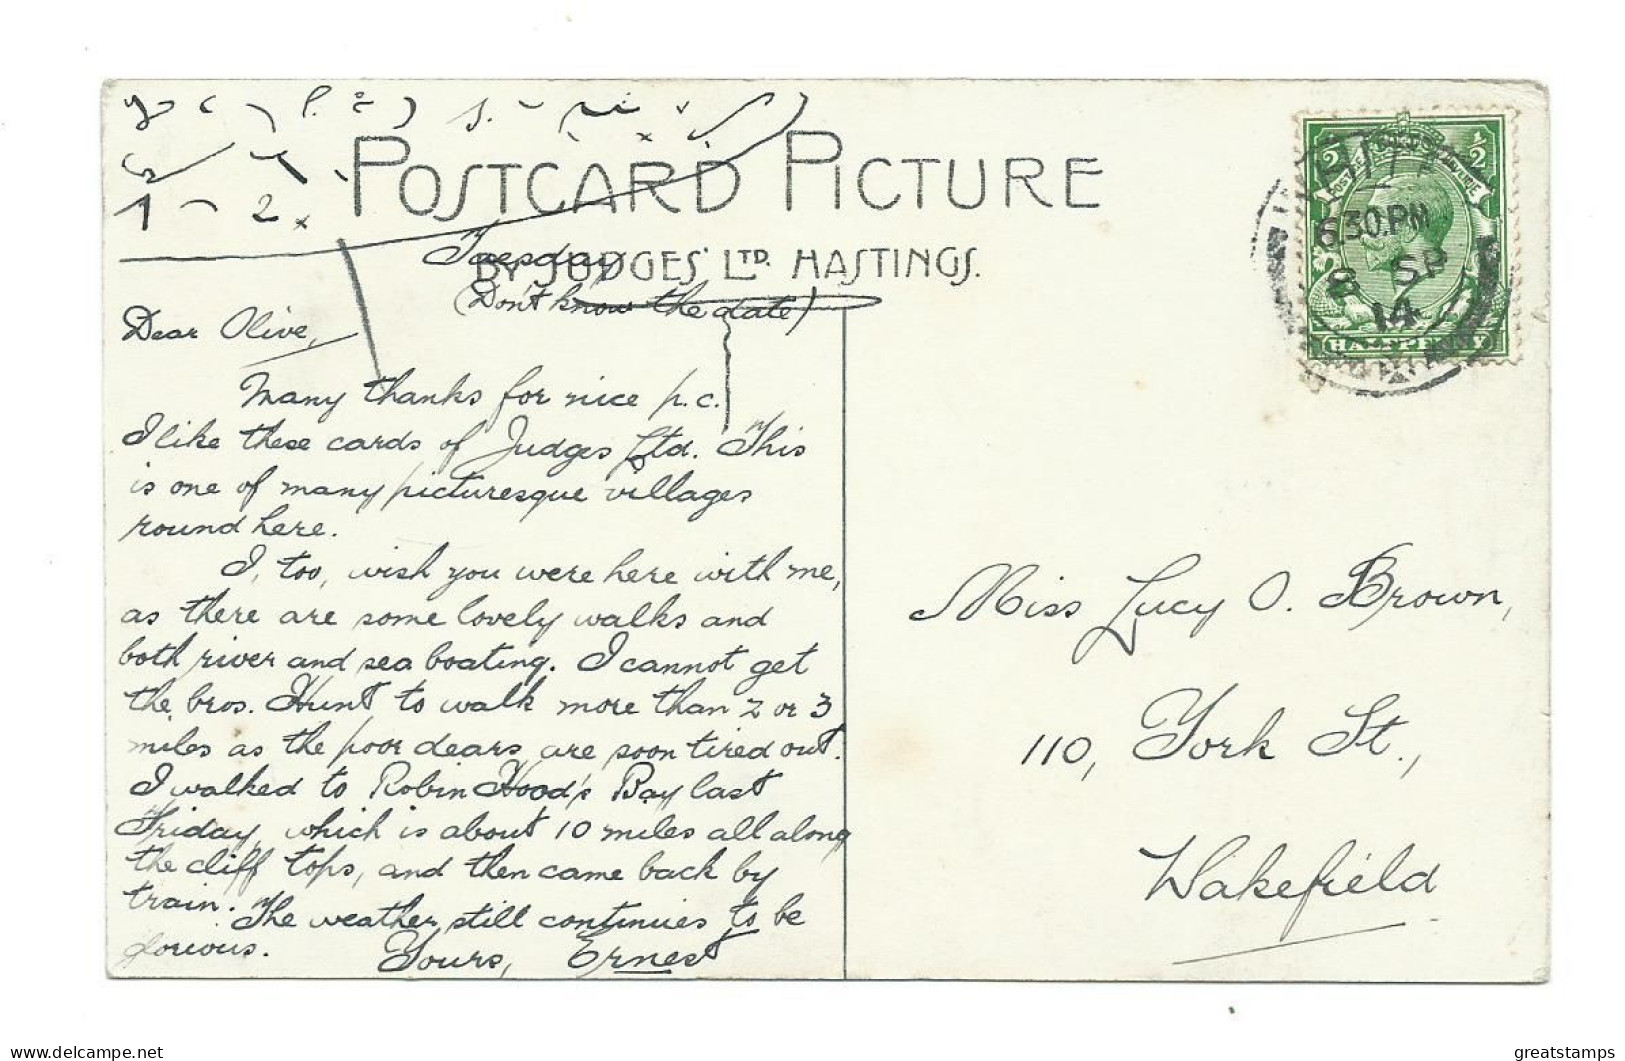 POSTCARD PICTURE
BY JUDGES' LTD. HASTINGS.
Tuesday
(Don't know the date)
Dear Olive,
Many thanks for nice p.c.
I like these cards of Judges Ltd. This
is one of many picturesque villages
round here.
I, too, wish you were here with me,
as there are some lovely walks and
both river and sea boating. I cannot get
the bros. Hunt to walk more than 2 or 3
miles as the poor dears, are soon tired out.
I walked to Robin Hood's Bay last
Friday, which is about 10 miles all along
the cliff tops, and then came back by
train. The weather still continues to be
glorious.
Yours, Ernest
1/2 1/2
POSTAGE REVENUE
6.30 PM
8 SP
14
HALFPENNY
Miss Lucy O. Brown,
110, York St.,
Wakefield
delcampe.net
greatstamps